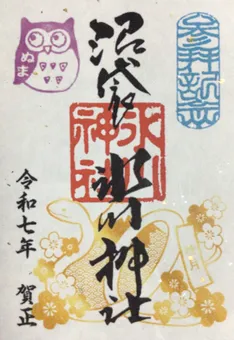 ぬま
参拝記念
沼袋
氷川神社
氷川
神社
令和七年 賀正